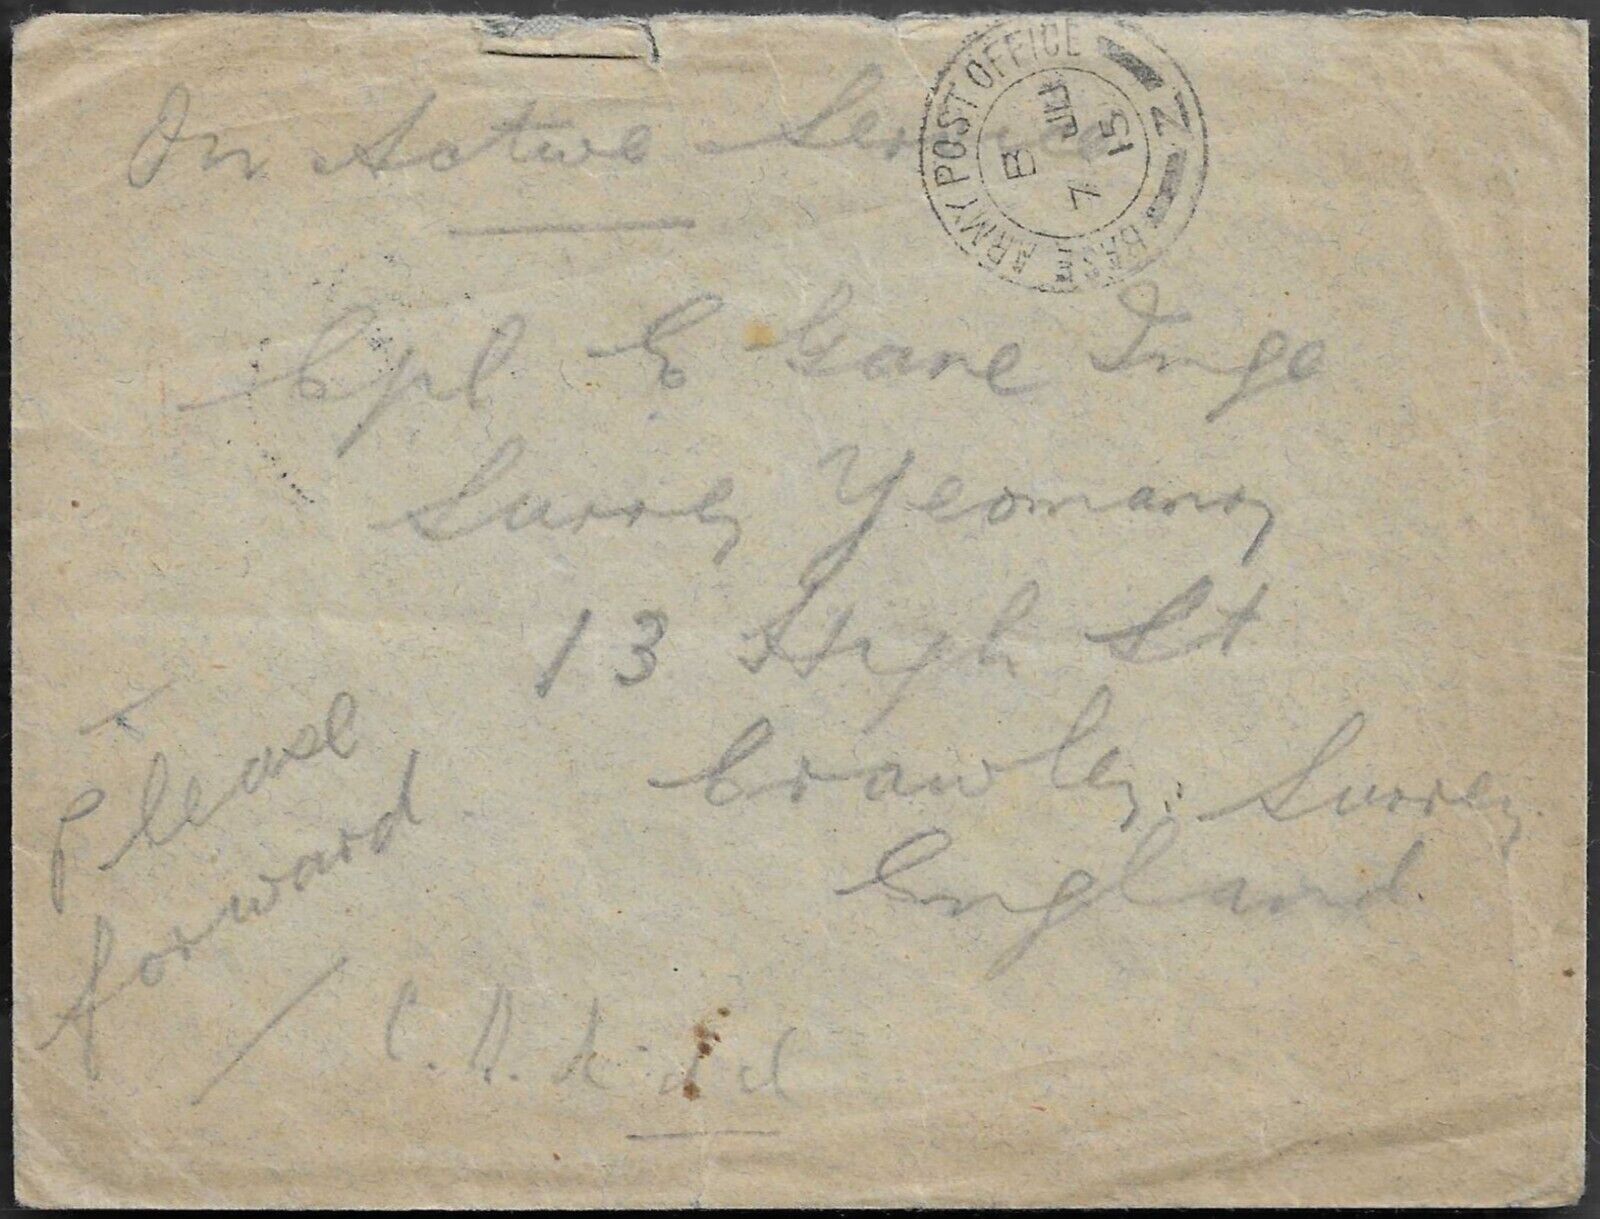 On Active Service
BASE ARMY POST OFFICE Z
B
7 JU 15
Cpl E Gane Inge
Surrey Yeomanry
13 High St
Crawley, Surrey
England
Please
forward